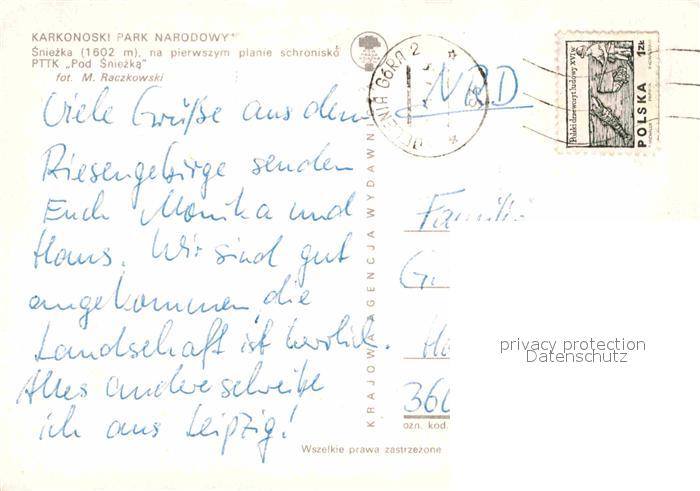 KARKONOSKI PARK NARODOWY
Śnieżka (1602 m), na pierwszym planie schronisko
PTTK „Pod Śnieżką"
fot. M. Raczkowski
Viele Grüße aus dem
Riesengebirge senden
Euch Monika und
Hans. Wir sind gut
angekommen, die
Landschaft ist herrlich.
Alles andere schreibe
ich aus Leipzig!
KRAJOWA AGENCJA WYDAWNI
JELENIA GÓRA 2
NRD
Polski drzeworyt ludowy XVI w.
1 ZŁ
POLSKA
Familie
G.
360
ozn. kod.
Wszelkie prawa zastrzeżone
privacy protection
Datenschutz